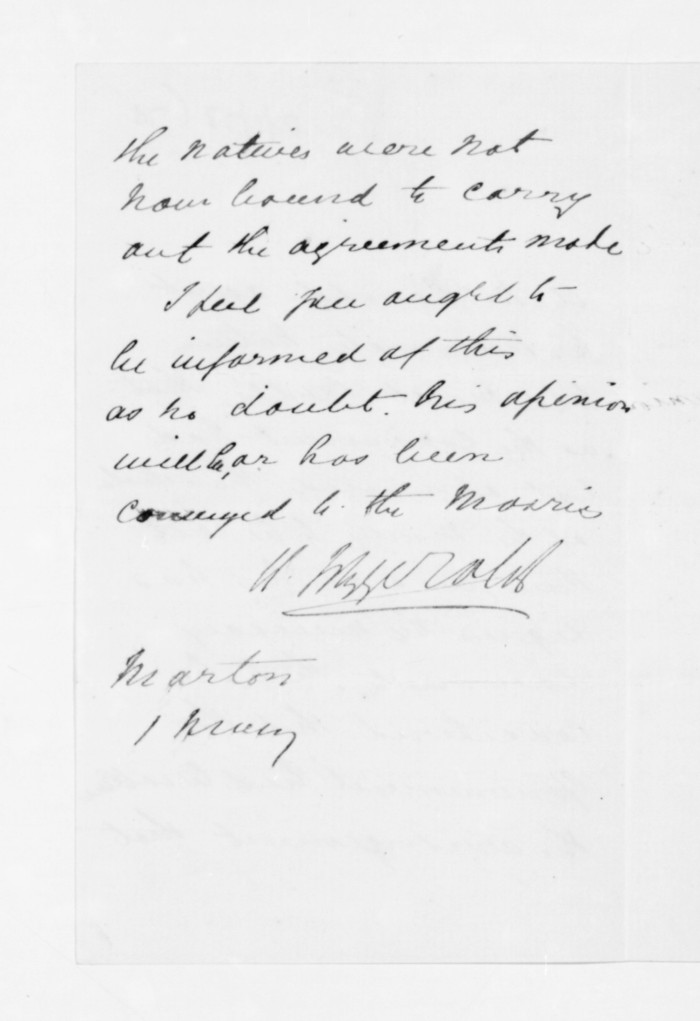 the natives were not
now bound to carry
out the agreements made
I feel you ought to
be informed of this
as no doubt. his opinion
will be, or has been
conveyed to the Maories
Fitzgerald
Marton
1